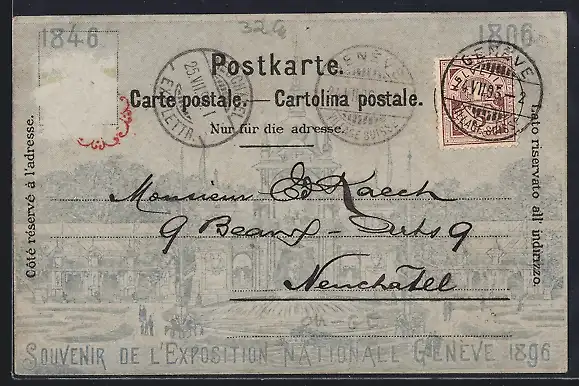 32G
1846
1896
Postkarte.
Carte postale. — Cartolina postale.
Nur für die adresse.
Côté réservé à l'adresse.
Lato riservato all' indirizzo.
GENÈVE
VILLAGE SUISSE
GENÈVE
VILLAGE SUISSE
Monsieur Ed Raech
9 Beaux-Arts 9
Neuchâtel
SOUVENIR DE L'EXPOSITION NATIONALE GENÈVE 1896